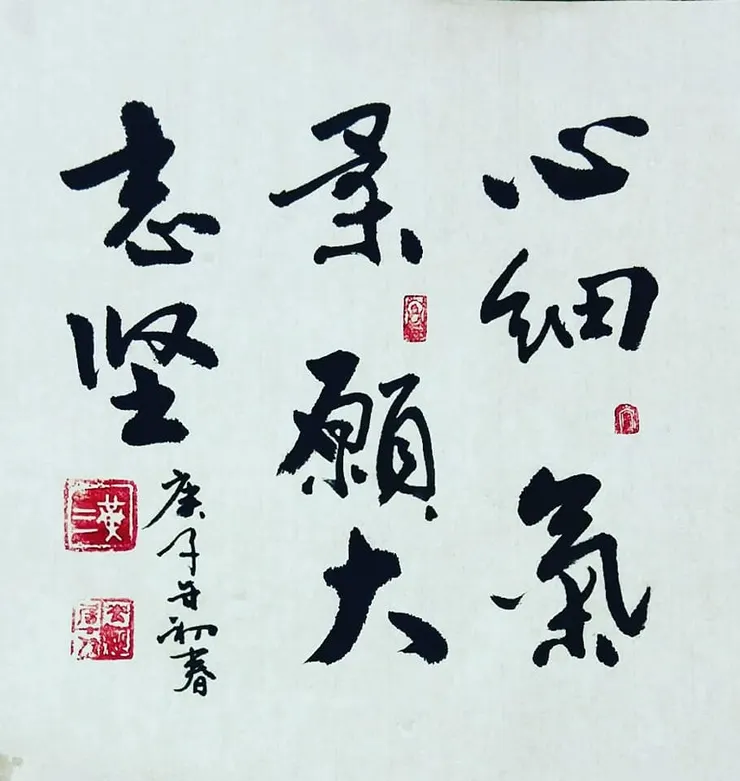 心细氣
柔願大
志坚
庚子年初春